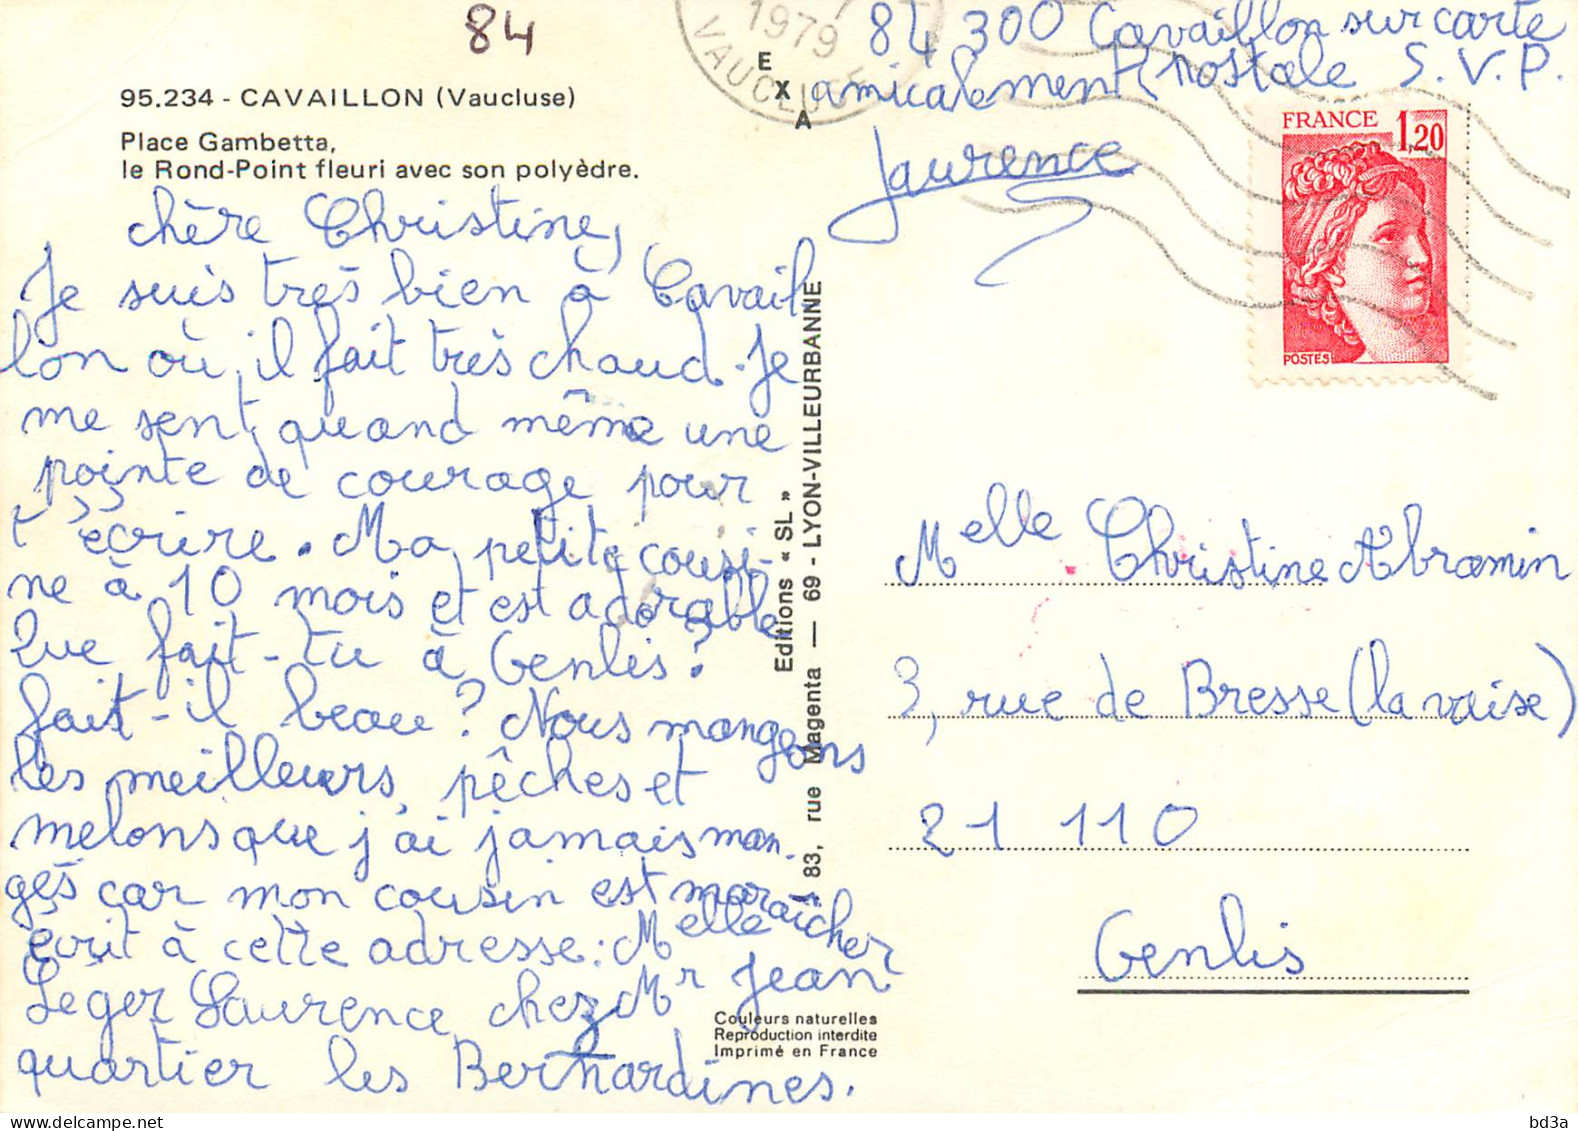 84
1979
VAUCLUSE
84 300 Cavaillon sur carte
postale S.V.P.
amicalement
Laurence
95.234 - CAVAILLON (Vaucluse)
Place Gambetta,
le Rond-Point fleuri avec son polyèdre.
chère Christine,
Je suis très bien à Cavail-
lon où il fait très chaud. Je
me sent quand même une
pointe de courage pour
t'écrire. Ma petite cousi-
ne à 10 mois et est adorable
Que fait-tu à Genlis?
fait-il beau? Nous mangeons
les meilleurs pêches et
melons que j'ai jamais man-
gés car mon cousin est maraîcher
écrit à cette adresse: Melle
Léger Laurence chez Mr Jean
quartier les Bernardines.
EXA
Editions « SL »
83, rue Magenta — 69 - LYON-VILLEURBANNE
Couleurs naturelles
Reproduction interdite
Imprimé en France
FRANCE 1,20
POSTES
Melle Christine Abramin
3, rue de Bresse (la vaise)
21 110
Genlis
bd3a